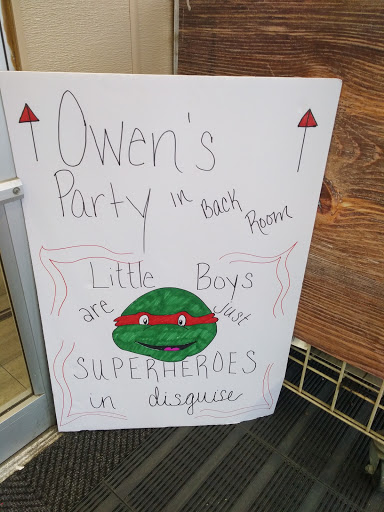 Owen's
Party in Back Room
Little Boys
are just
SUPERHEROES
in disguise